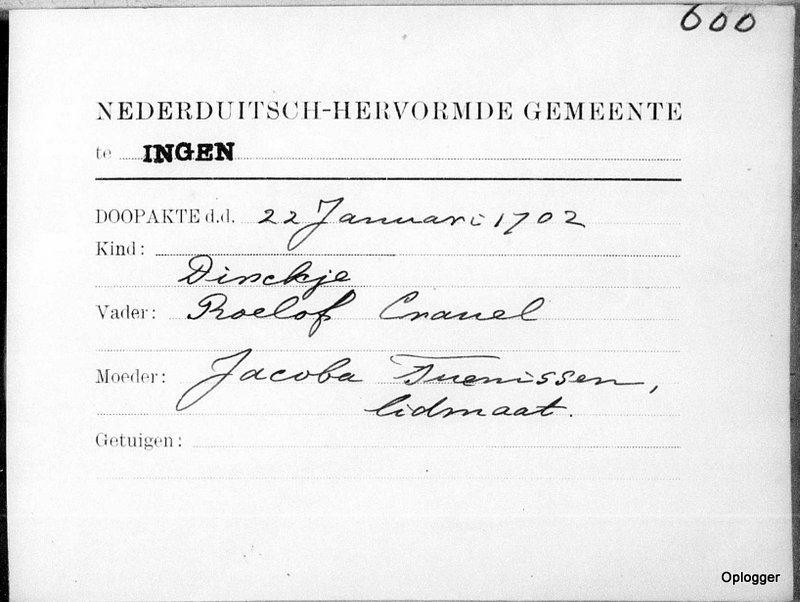 600
NEDERDUITSCH-HERVORMDE GEMEENTE
te INGEN
DOOPAKTE d.d. 22 Januari 1702
Kind:
Dirckje
Vader: Roelof Cranel
Moeder: Jacoba Tuenissen,
lidmaat.
Getuigen:
Oplogger